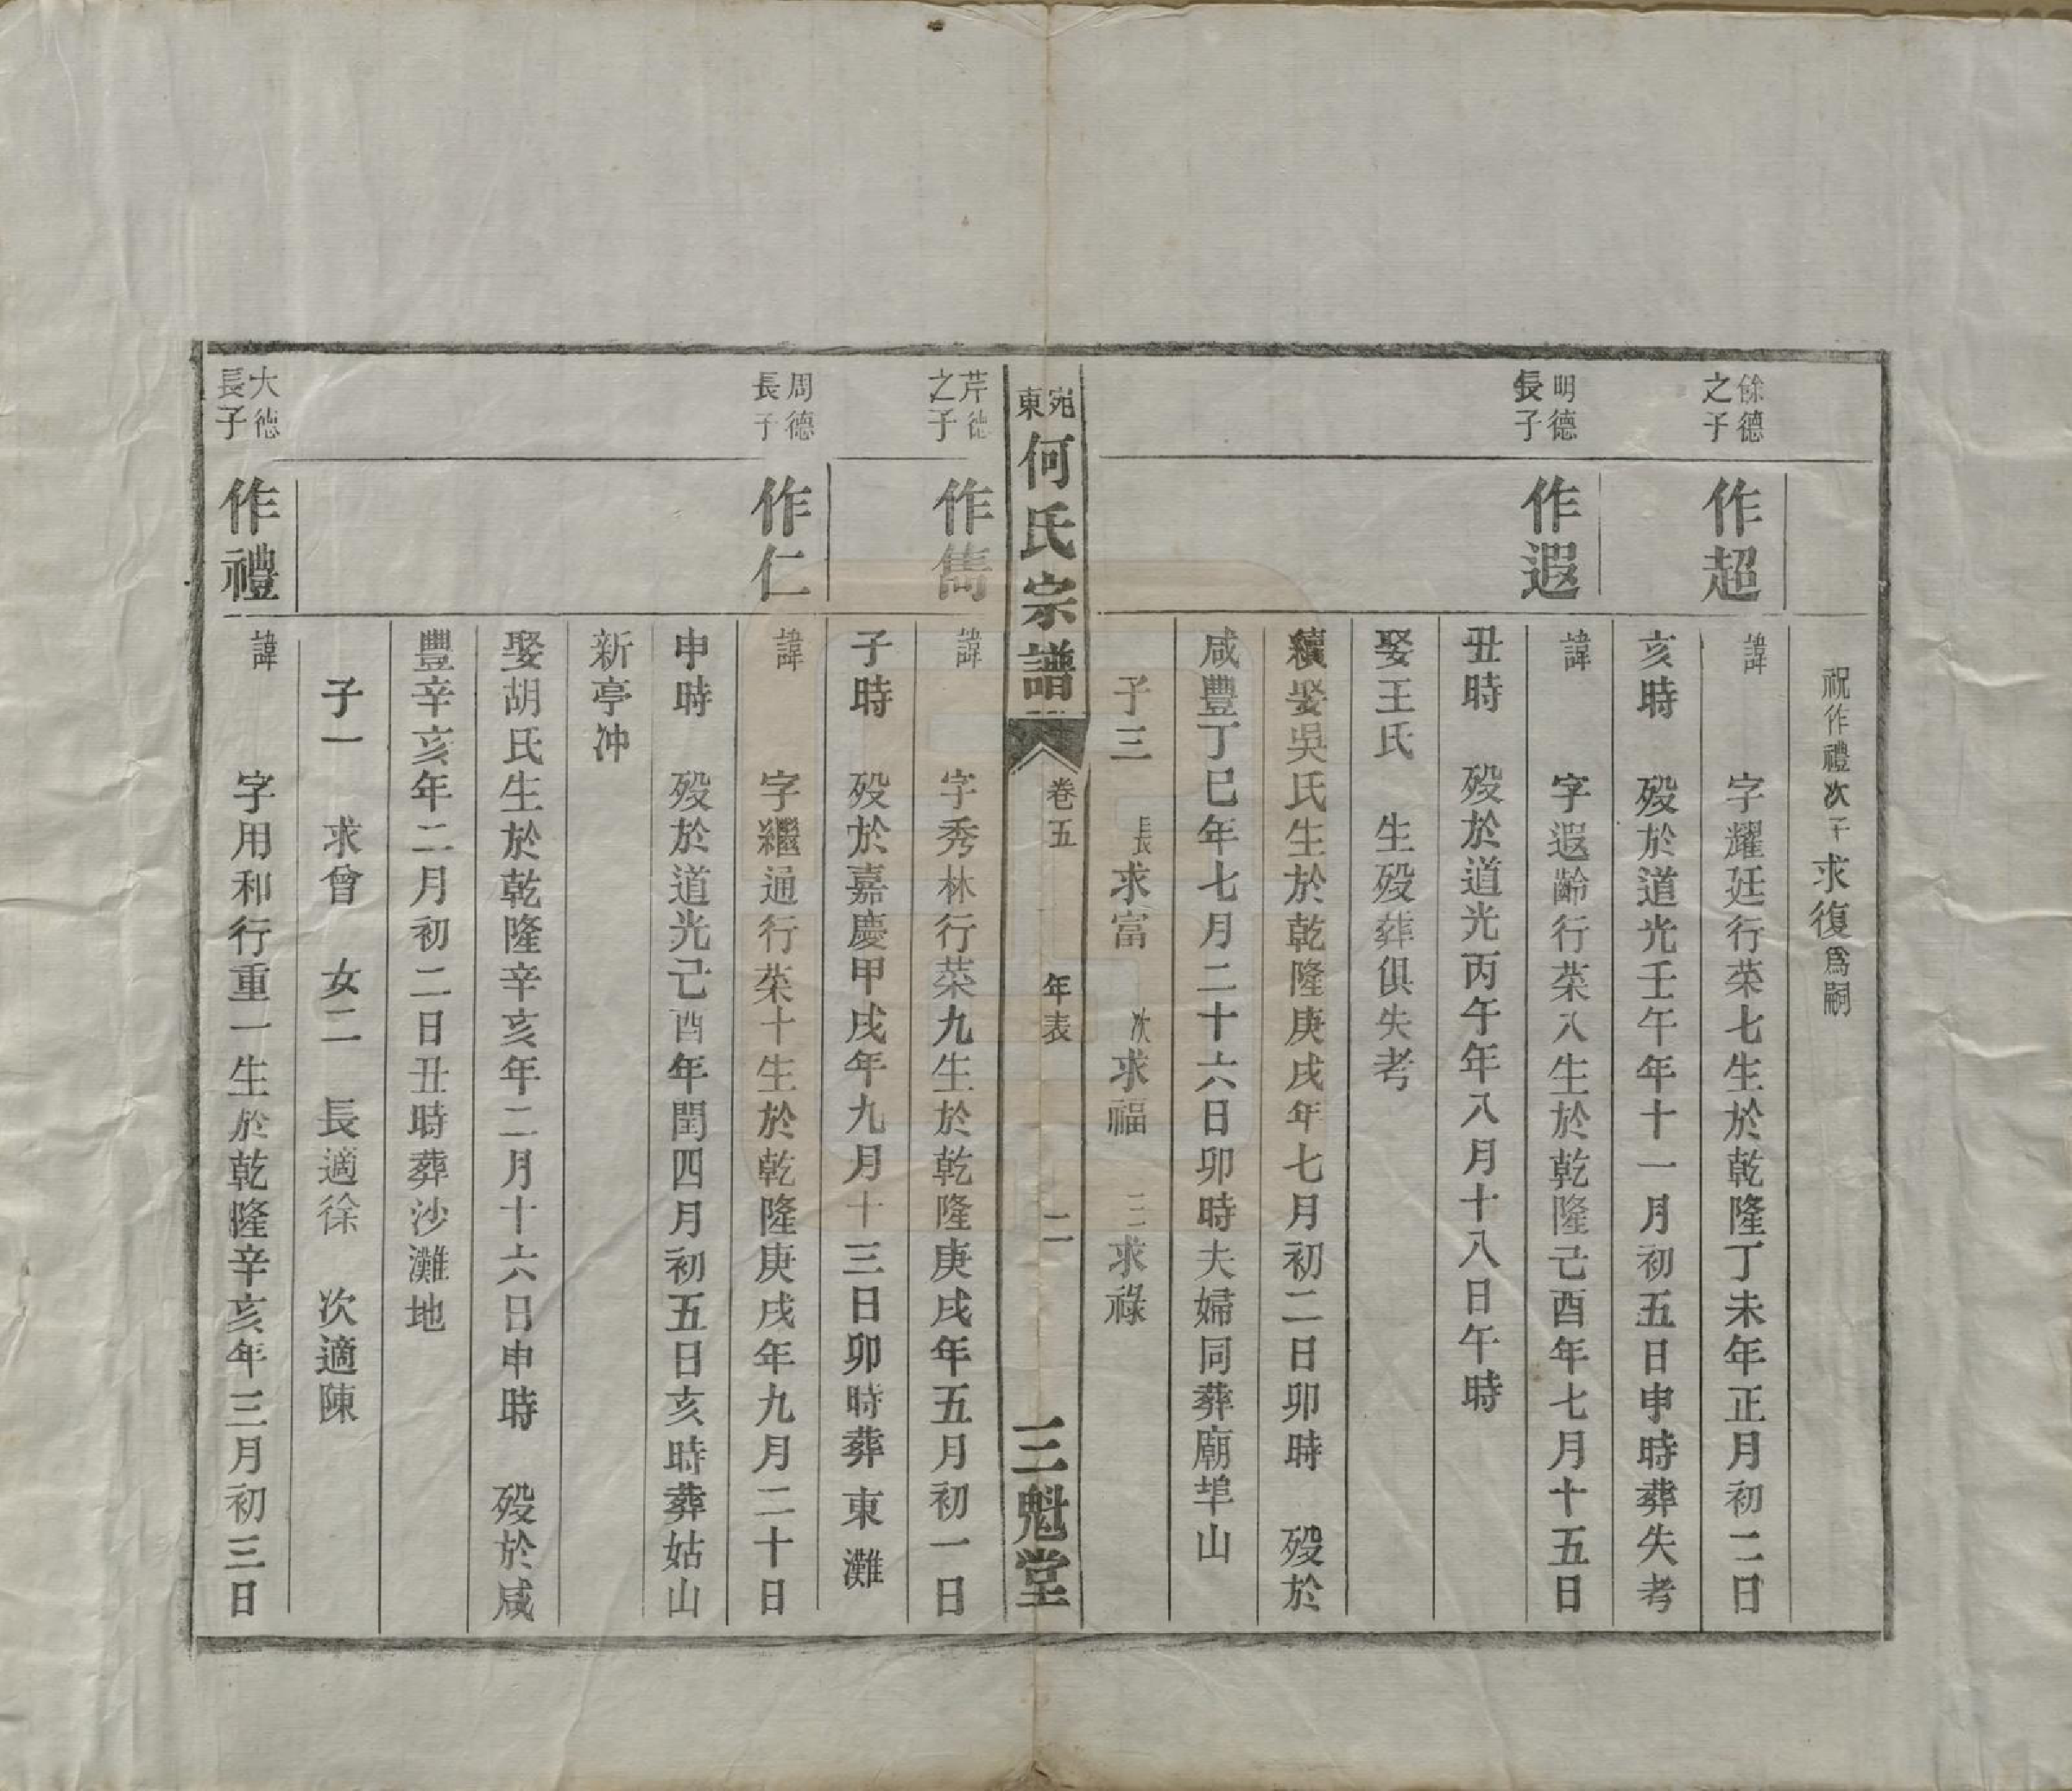 祝作禮次子求復爲嗣
餘德之子
作超
諱　字耀廷行荣七生於乾隆丁未年正月初二日
亥時　殁於道光壬午年十一月初五日申時葬失考
明德長子
作遐
諱　字遐齡行荣八生於乾隆己酉年七月十五日
丑時　殁於道光丙午年八月十八日午時
娶王氏　生殁葬俱失考
續娶吳氏生於乾隆庚戌年七月初二日卯時　殁於
咸豐丁巳年七月二十六日卯時夫婦同葬廟埠山
子三　長求富　次求福　三求祿
宛東何氏宗譜　卷五　年表　二　三魁堂
芹德之子
作雋
諱　字秀林行荣九生於乾隆庚戌年五月初一日
子時　殁於嘉慶甲戌年九月十三日卯時葬東灘
周德長子
作仁
諱　字繼通行荣十生於乾隆庚戌年九月二十日
申時　殁於道光己酉年閏四月初五日亥時葬姑山
新亭冲
娶胡氏生於乾隆辛亥年二月十六日申時　殁於咸
豐辛亥年二月初二日丑時葬沙灘地
子一　求曾　女二　長適徐　次適陳
大德長子
作禮
諱　字用和行重一生於乾隆辛亥年三月初三日